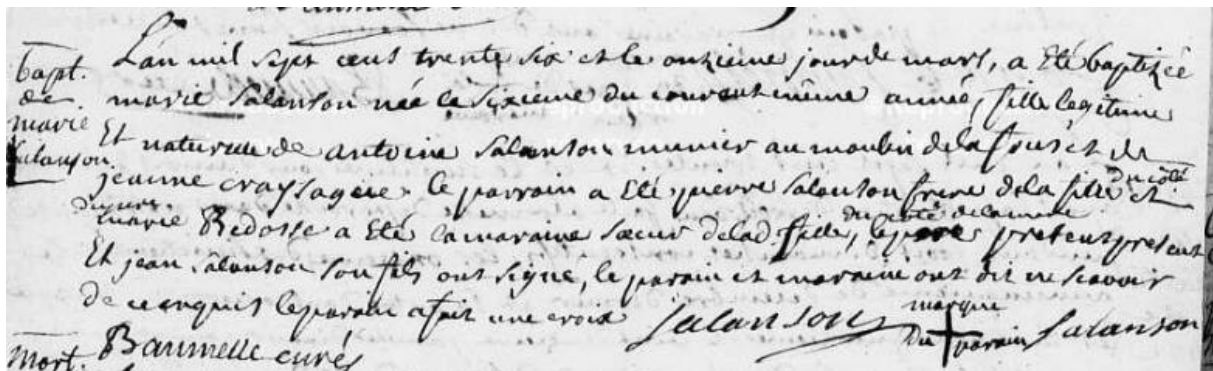 bapt.
de
marie
Salanson
L'an mil sept cens trente six et le onzieme jour de mars, a Eté baptizée
marie Salanson née le sixieme du courent même année, fille legitime
Et naturelle de antoine Salanson munier au moulin de la fous et de
jeanne crayssagere. le parrain a Eté pierre Salanson frere de la fille et
du coté
du pere
marie Bedosse a Eté la maraine sœur de lad. fille, le pere pretent present
du coté de la mere
Et jean Salanson son fils ont signé, le parain et maraine ont dit ne scavoir
de ce enquis le parain a fait une croix Salanson marque
du + parain Salanson
mort. Baumelle curé